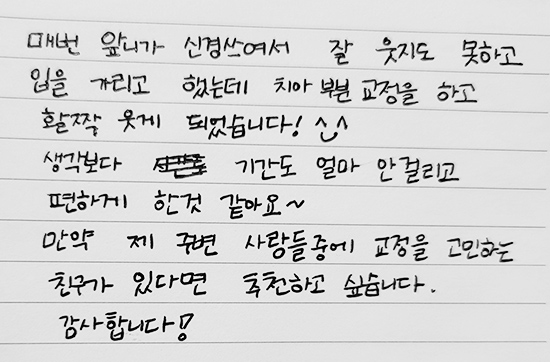 매번 앞니가 신경쓰여서 잘 웃지도 못하고
입을 가리고 했는데 치아 부분 교정을 하고
활짝 웃게 되었습니다! ^^
생각보다 기간도 얼마 안걸리고
편하게 한것 같아요~
만약 제 주변 사람들중에 교정을 고민하는
친구가 있다면 추천하고 싶습니다.
감사합니다!